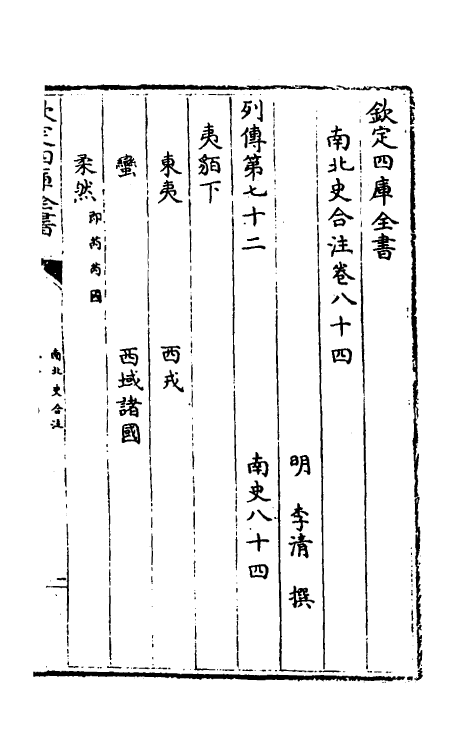 欽定四庫全書
南北史合注卷八十四
明 李清 撰
列傳第七十二 南史八十四
夷貊下
東夷 西戎
蠻 西域諸國
柔然 即芮芮國
欽定四庫全書
南北史合注
一